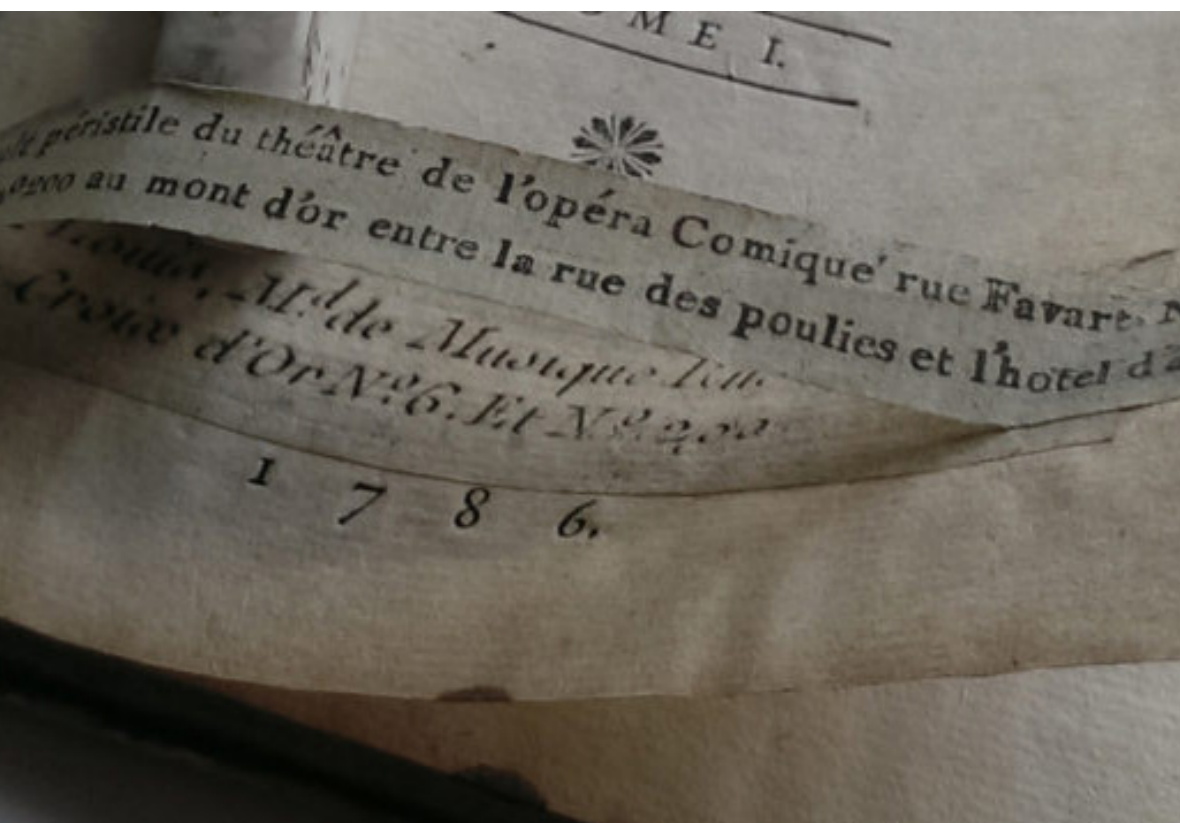 OME I.
péristile du théâtre de l'opéra Comique rue Favart. N
au mont d'or entre la rue des poulies et l'hotel d'a
M.d de Musique
Croix d'Or N.o 6. Et N.o
1 7 8 6.